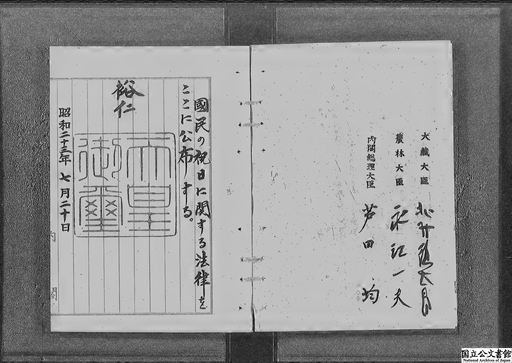 國民の祝日に関する法律を
ここに公布する。
裕仁
天皇
御璽
昭和二十三年 七月二十日
大藏大臣 北村德太郎
農林大臣 永江一夫
内閣総理大臣 芦田 均
国立公文書館
National Archives of Japan